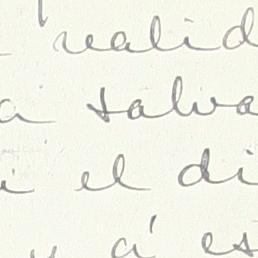 valid
a salva
i el di
y a' es